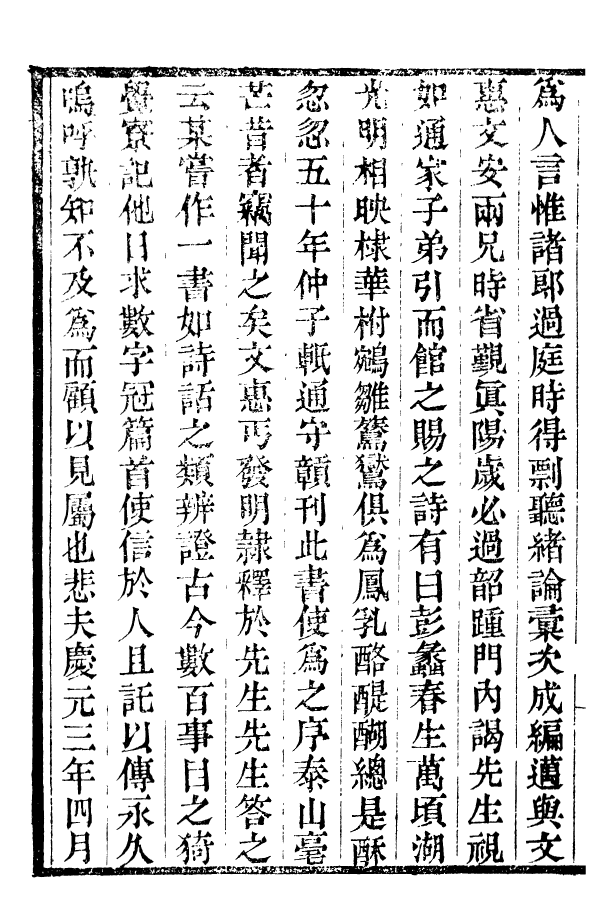 爲人言惟諸郎過庭時得剽聽緒論彙次成編邁與文
惠文安兩兄時省覲眞陽歲必過韶踵門內謁先生視
如通家子弟引而館之賜之詩有曰彭蠡春生萬頃湖
光明相映棣華柎鵷雛鸑鷟俱爲鳳乳酪醍醐總是酥
忽忽五十年仲子軧通守贛刊此書使爲之序泰山毫
芒昔者竊聞之矣文惠丐發明隸釋於先生先生答之
云某嘗作一書如詩話之類辨證古今數百事目之猗
覺寮記他日求數字冠篇首使信於人且託以傳永久
嗚呼孰知不及爲而顧以見屬也悲夫慶元三年四月